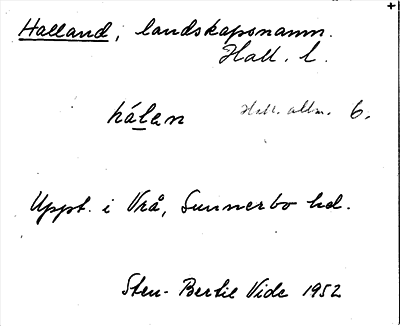 Halland, landskapsnamn.
Hall. l.
hálan Hall. allm. 6.
Uppt. i Vrå, Sunnerbo hd.
Sten-Bertil Vide 1952